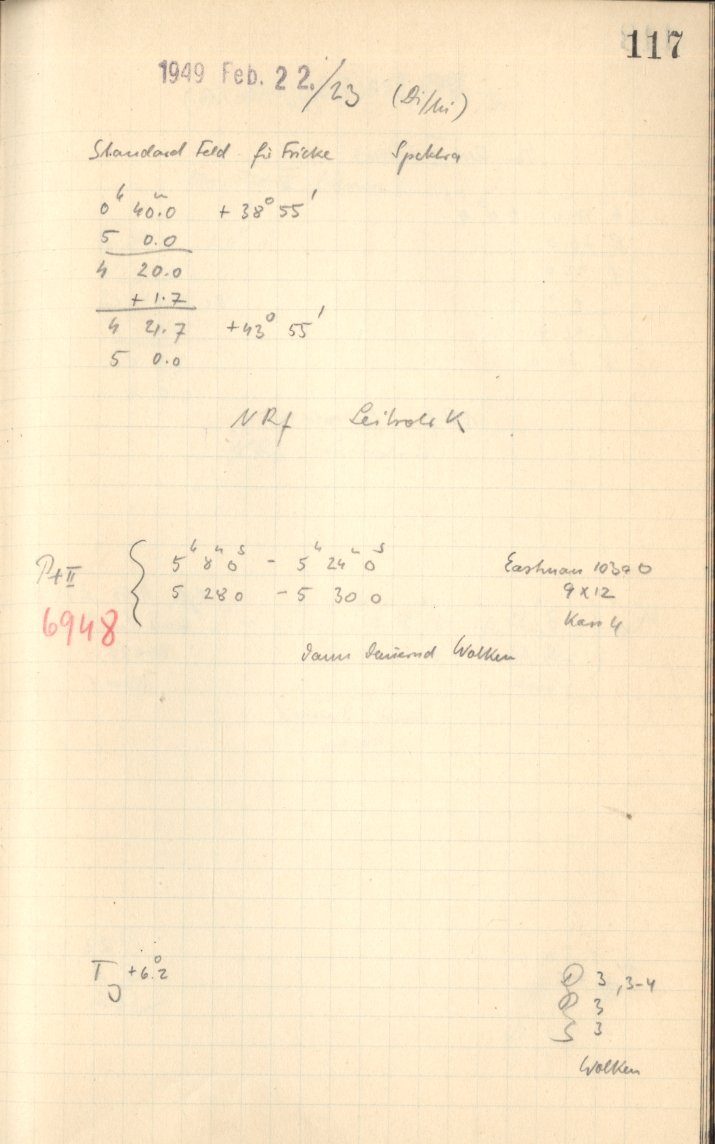 117
1949 Feb. 22./23 (Di/Mi)
Standard Feld für Fricke Spektra
0ʰ 40ᵐ.0 + 38° 55'
5 0.0
4 20.0
+ 1.7
4 21.7 + 43° 55'
5 0.0
NRf Leitrohr K
Pt II { 5ʰ 8ᵐ 0ˢ - 5ʰ 24ᵐ 0ˢ Eastman 103a O
5 28 0 - 5 30 0 9 x 12
6948 Kass 4
dann dauernd Wolken
T +6°.2
D 3, 3-4
R 3
S 3
Wolken